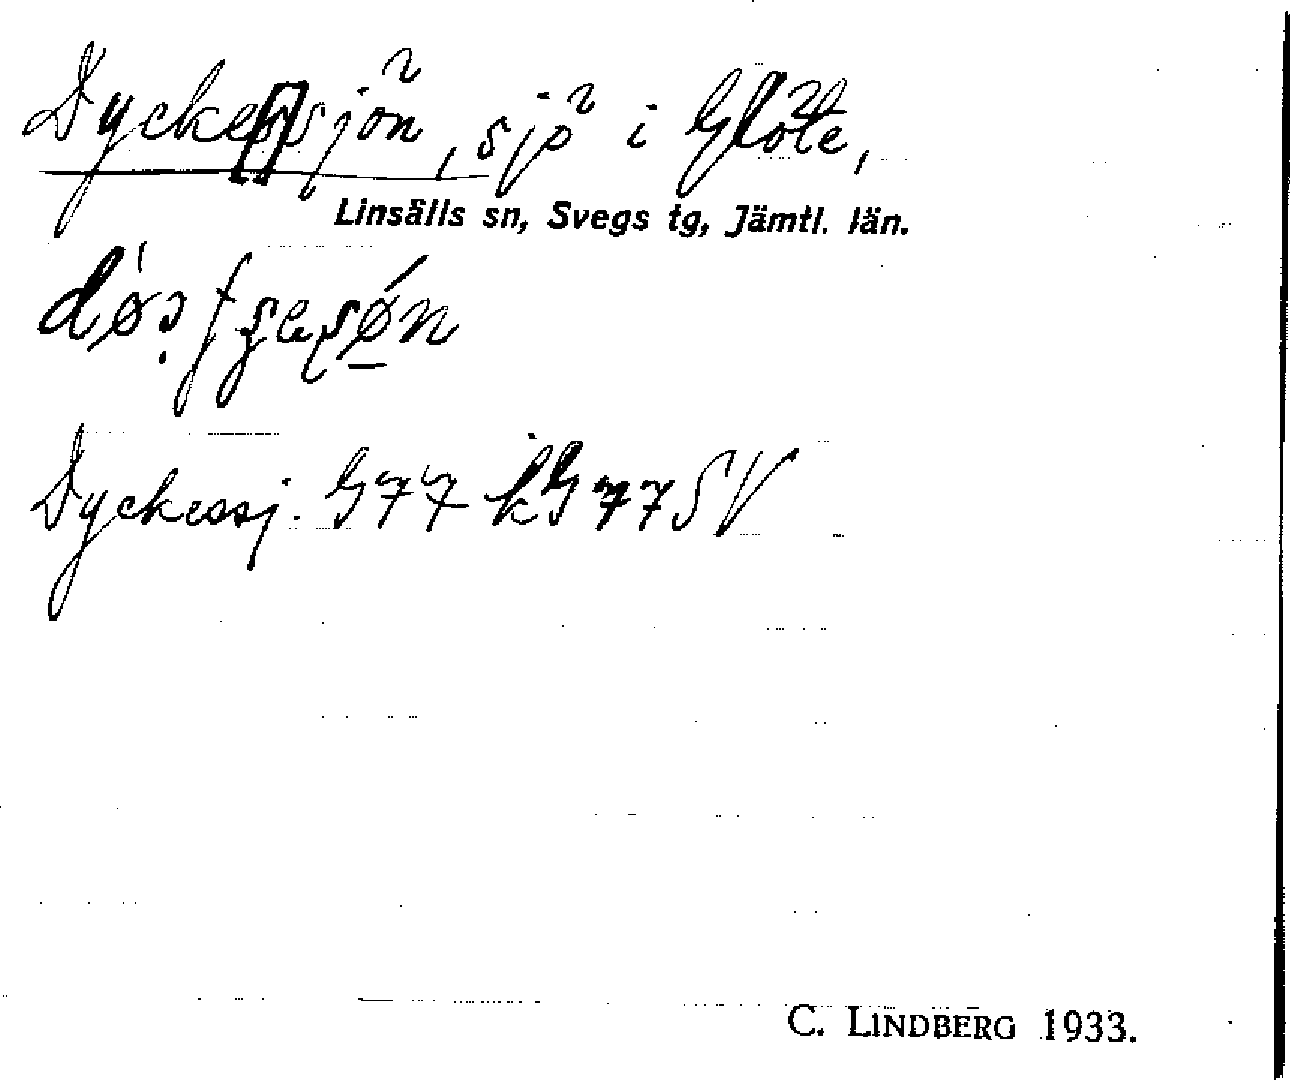 Dycke[s]sjön, sjö i Glöte,
Linsälls sn, Svegs tg, Jämtl. län.
Dyckessj. G77 kG77SV
C. LINDBERG 1933.